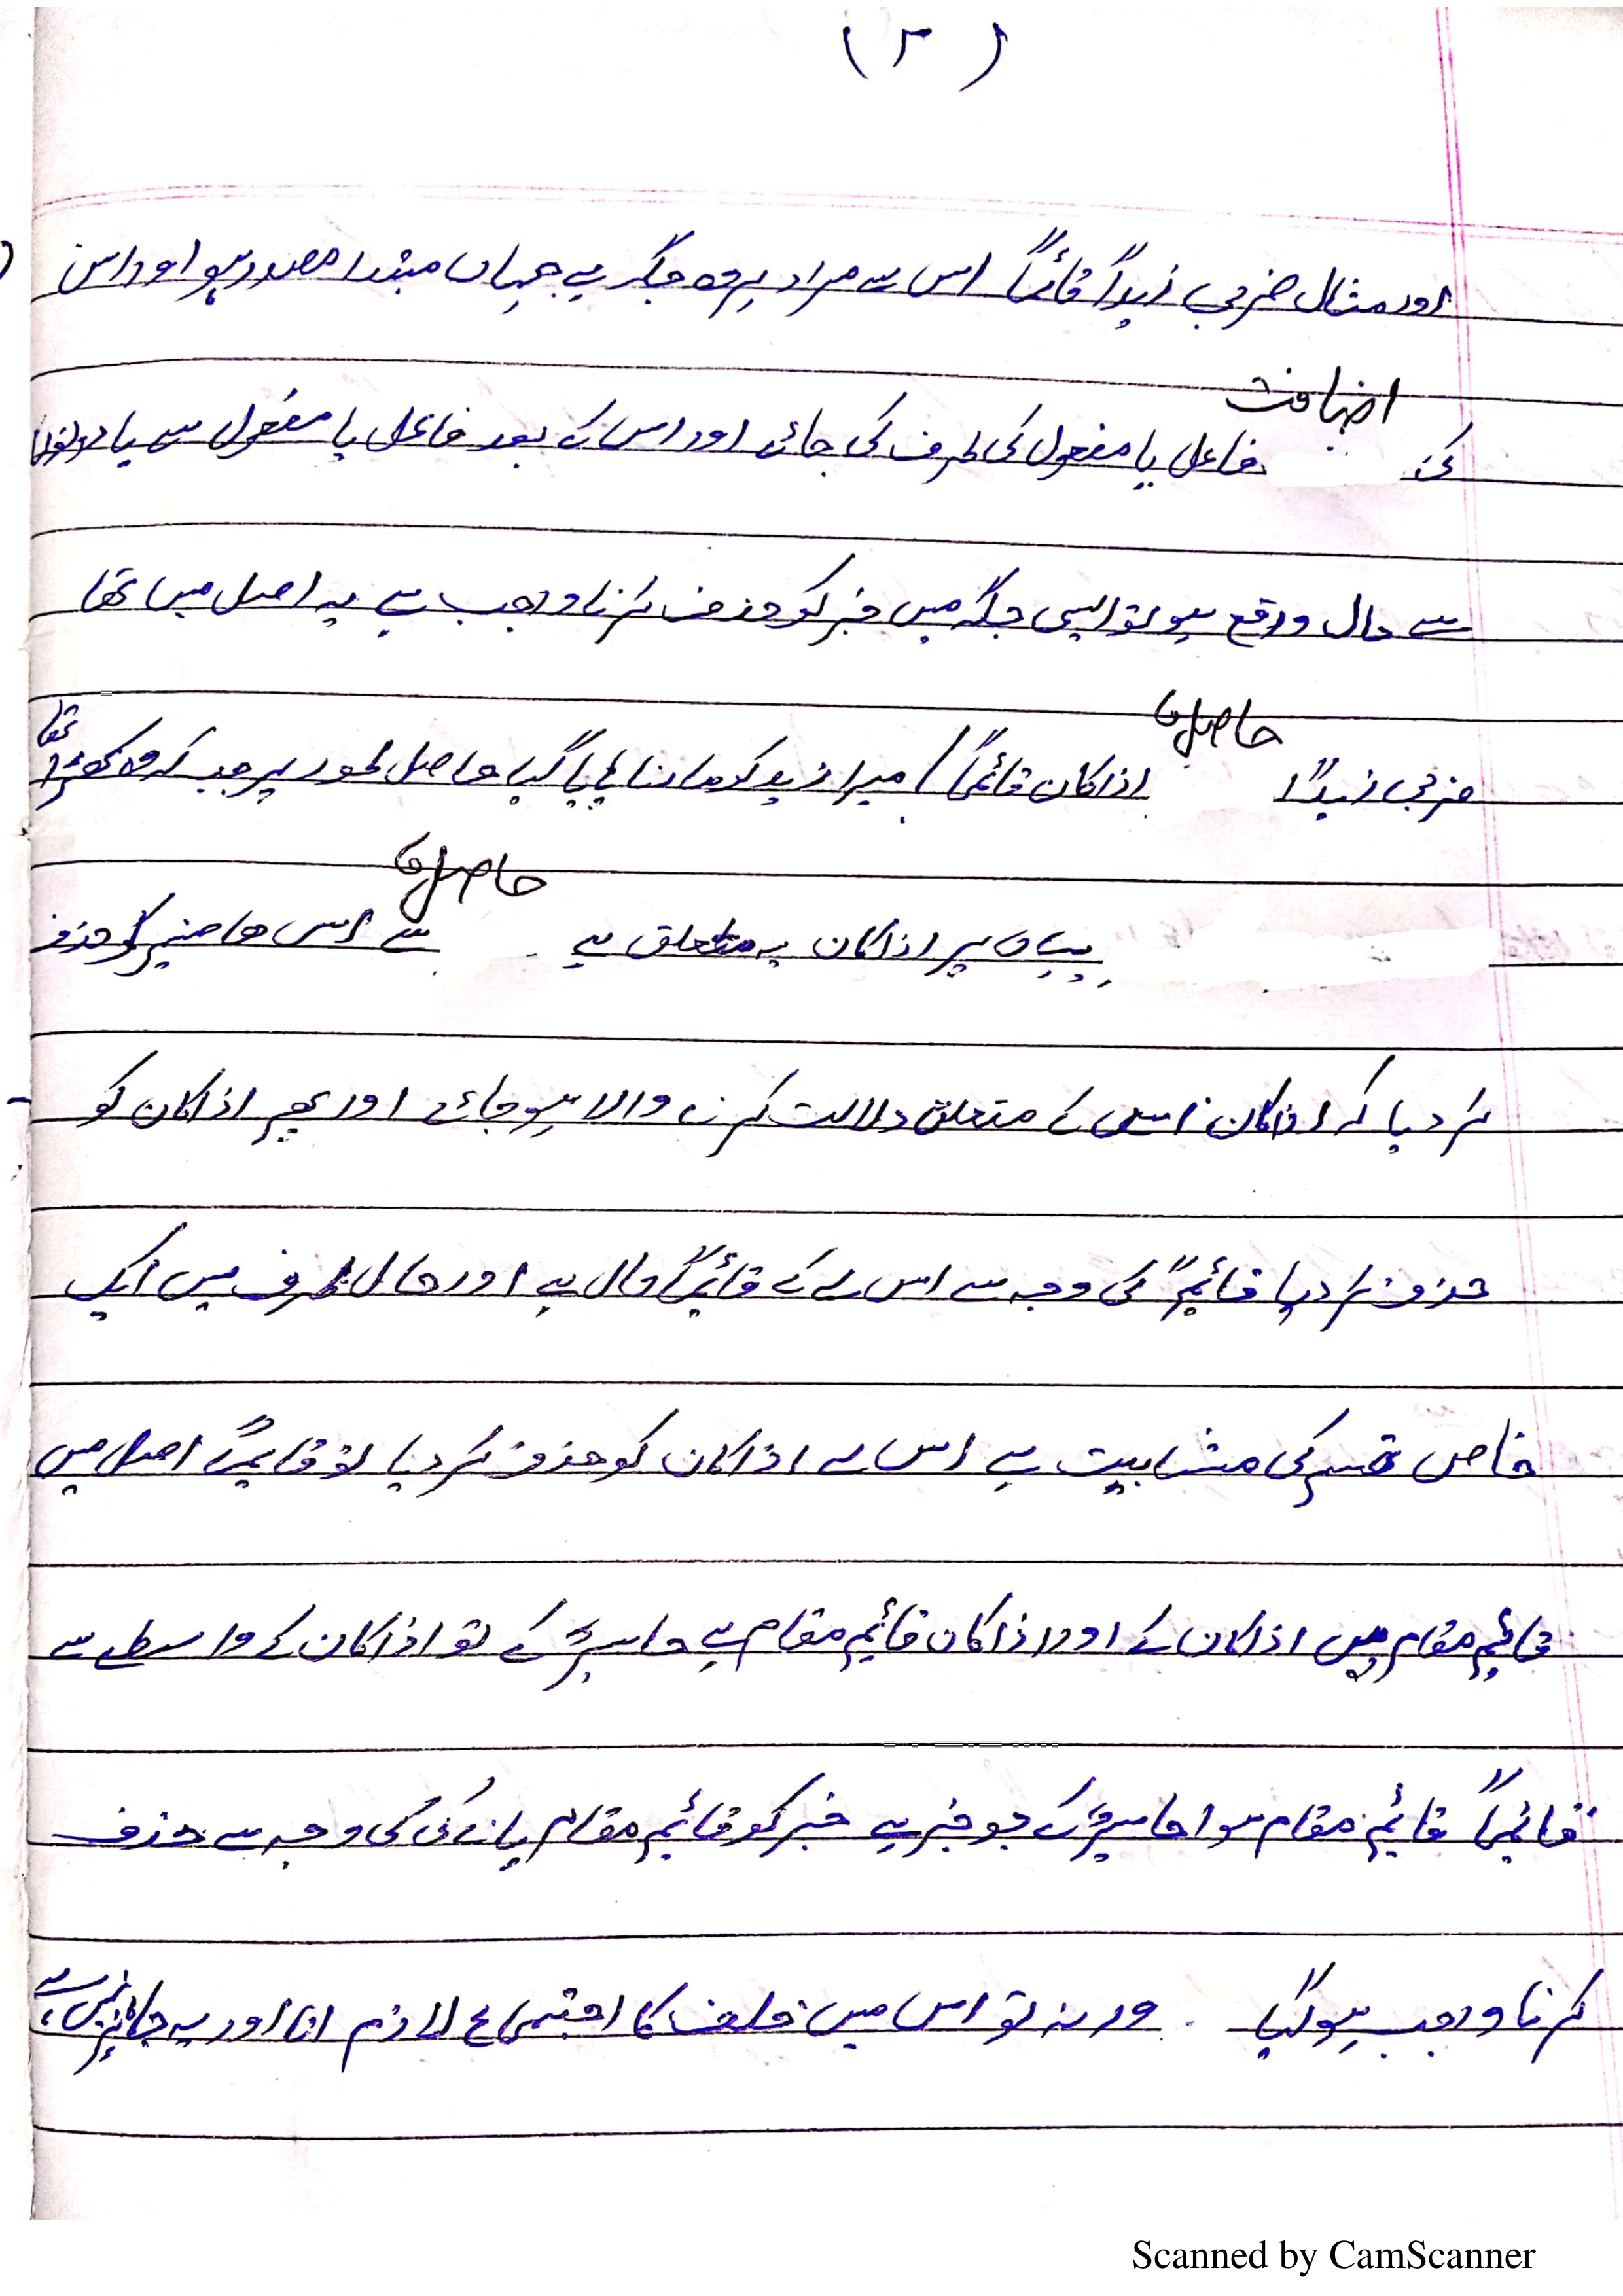 (۳)
اور مثال ضربی زیداً قائماً اس سے مراد ہر وہ جگہ ہے جہاں مبتدا مصدر ہو اور اس
کی اضافت فاعل یا مفعول کی طرف کی جائے اور اس کے بعد فاعل یا مفعول سے یا دونوں
سے حال واقع ہو تو ایسی جگہ میں خبر کو حذف کرنا واجب ہے یہ اصل میں تھا
ضربی زیداً حاصل اذا کان قائماً / میرا زید کو مارنا پایا گیا حاصل طور پر جب کہ وہ کھڑا تھا
یہاں پر اذا کان یہ متعلق ہے حاصل سے اس کو حذف
کر دیا کہ اذا کان اس کے متعلق دلالت کرنے والا ہو جائے اور پھر اذا کان کو
حذف کر دیا قائماً کی وجہ سے اس لے کے قائماً حال ہے اور حال ظرف میں ایک
خاص قسم کی مشابہت ہے اس لے اذا کان کو حذف کر دیا تو قائماً اصل میں
قائم مقام ہیں اذا کان کے اور اذا کان قائم مقام ہے کے تو اذا کان کے واسطے سے
قائماً قائم مقام ہوا کے جو خبر ہے خبر کو قائم مقام پانے کی وجہ سے حذف
کرنا واجب ہو گیا۔ ورنہ تو اس میں خلف کا اجتماع لازم اتا اور یہ جائز نہیں ہے
Scanned by CamScanner